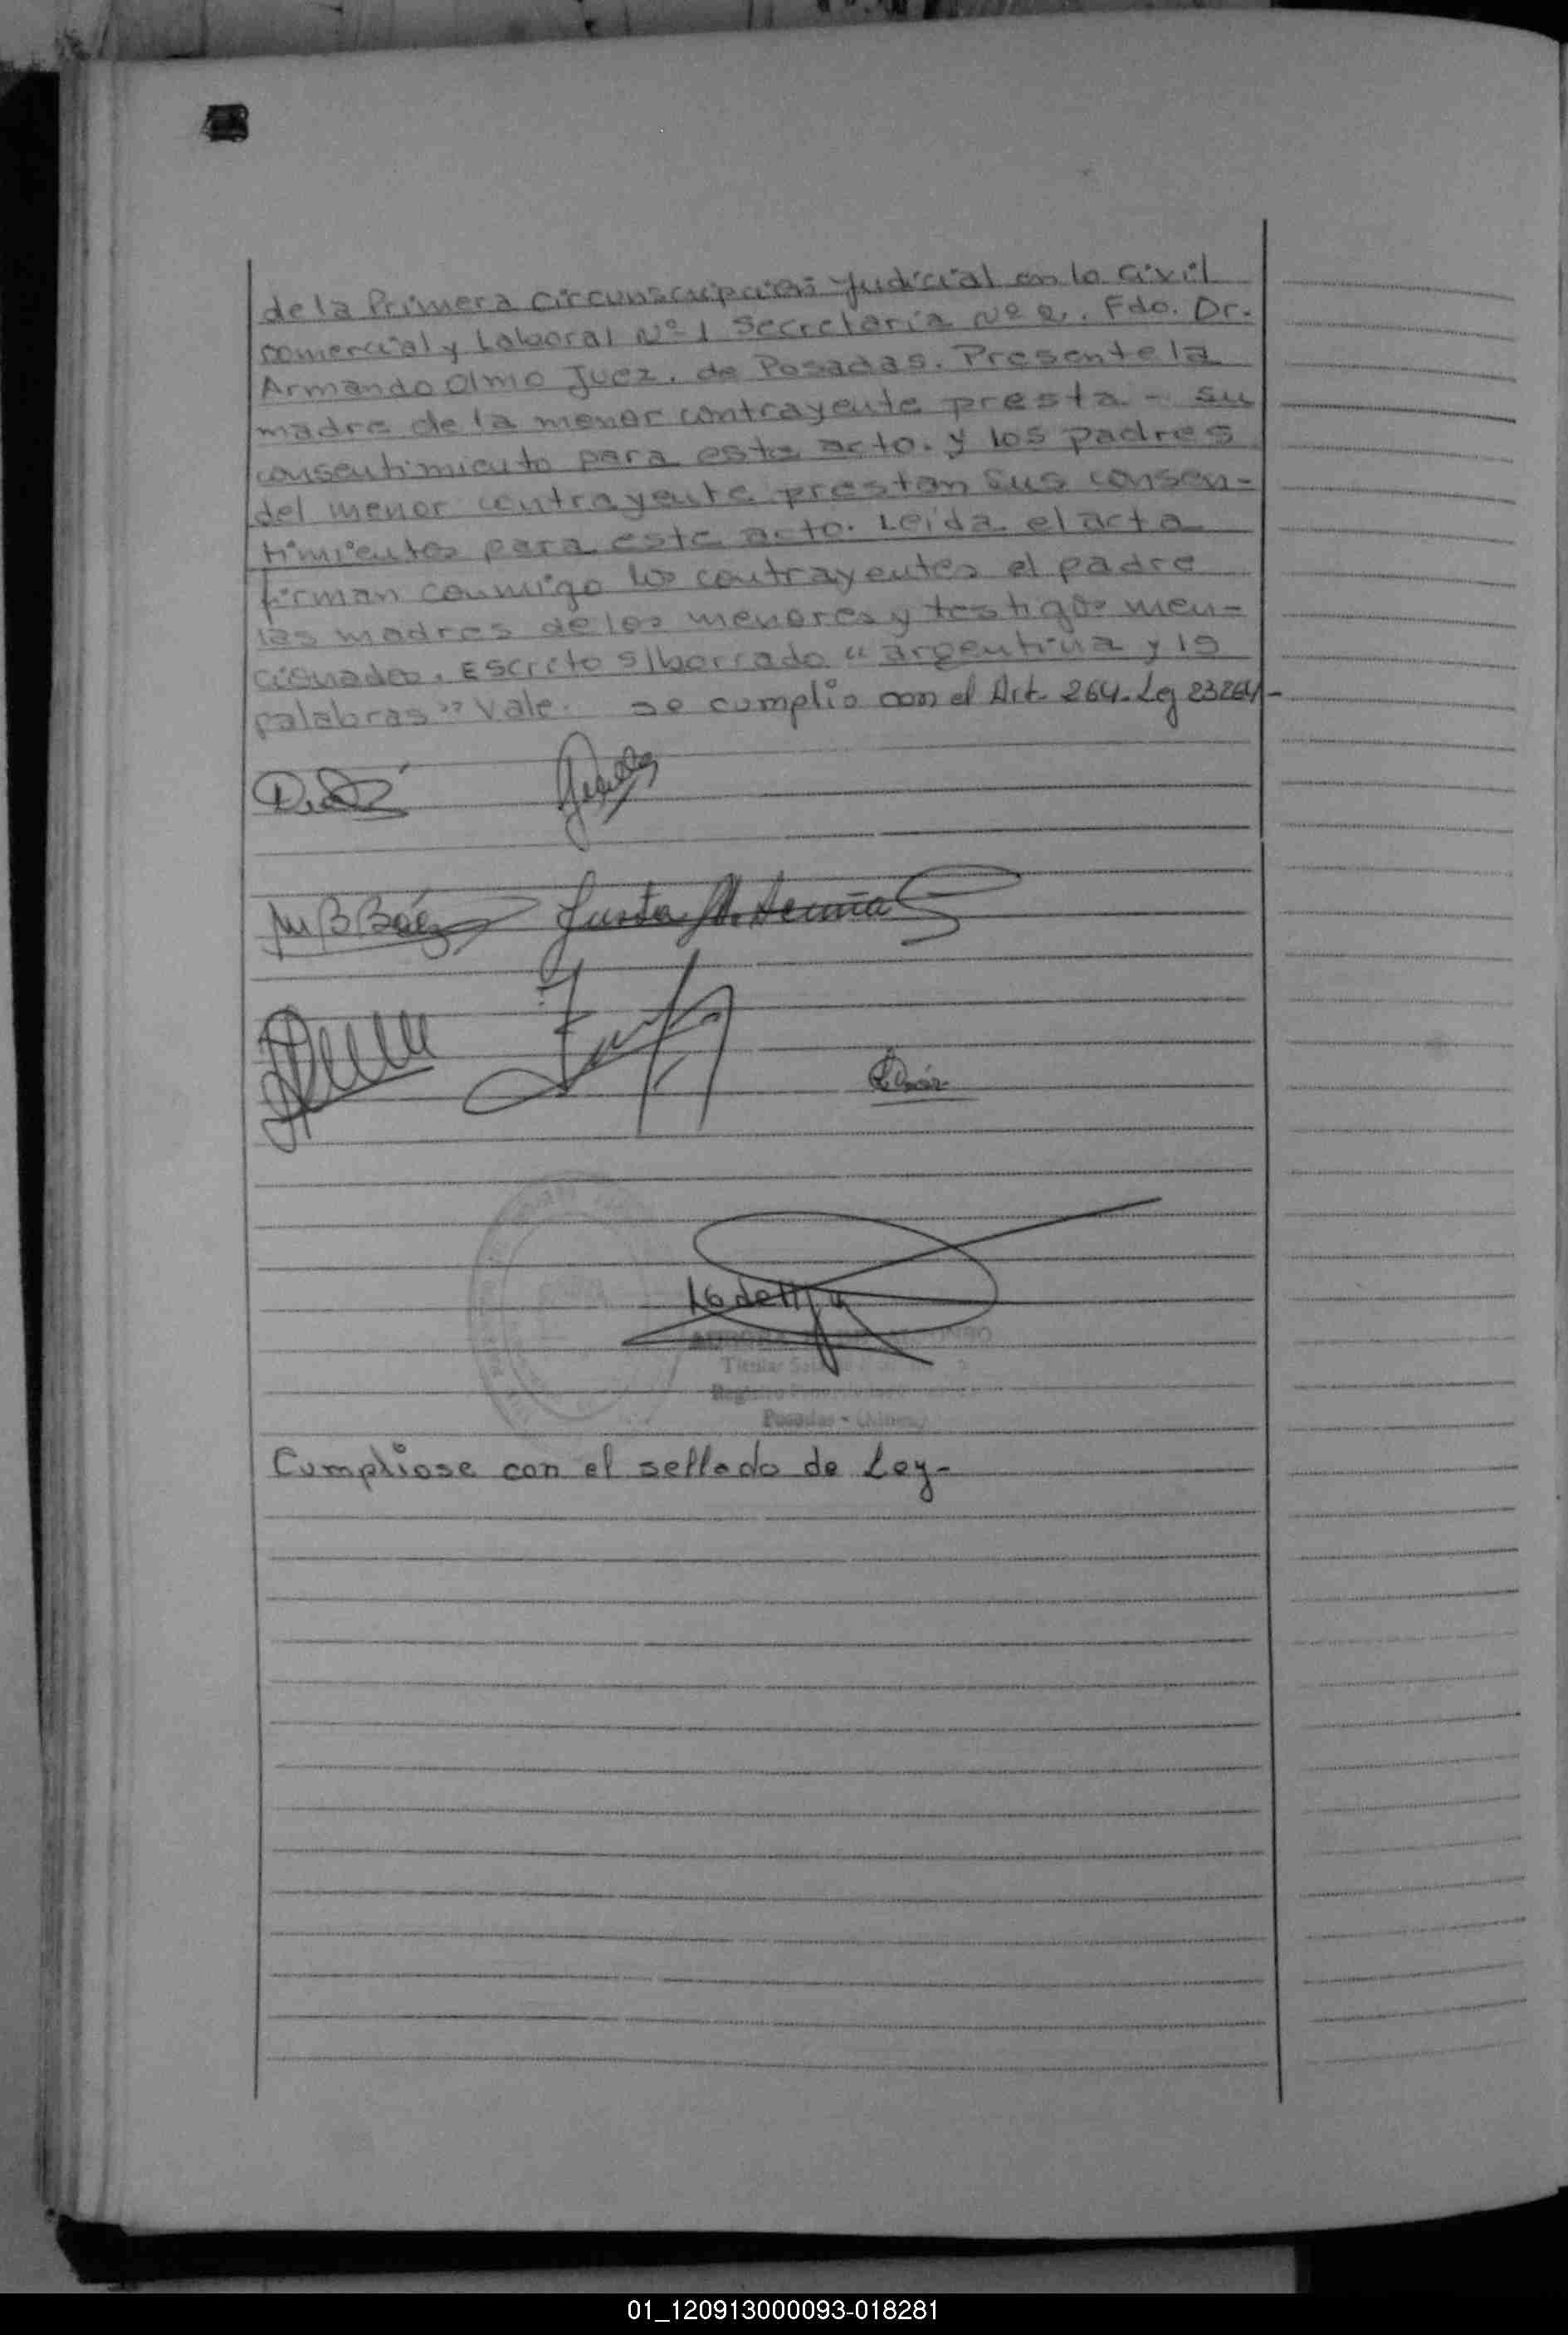 de la Primera Circunscripción Judicial en lo Civil
comercial y Laboral Nº 1 Secretaría Nº 2. Fdo. Dr.
Armando Olmo Juez. de Posadas. Presente la
madre de la menor contrayente presta - su
consentimiento para este acto. y los padres
del menor contrayente prestan sus consen-
timientos para este acto. Leída el acta
firman conmigo los contrayentes el padre
las madres de los menores y testigos men-
cionados. Escrito s/borrado "argentina y 19
palabras" Vale. se cumplio con el Art. 264. Ley 23264-
M B Báez Justa A. Acuña
Titular
Posadas -
Cumpliose con el sellado de Ley-
01_120913000093-018281